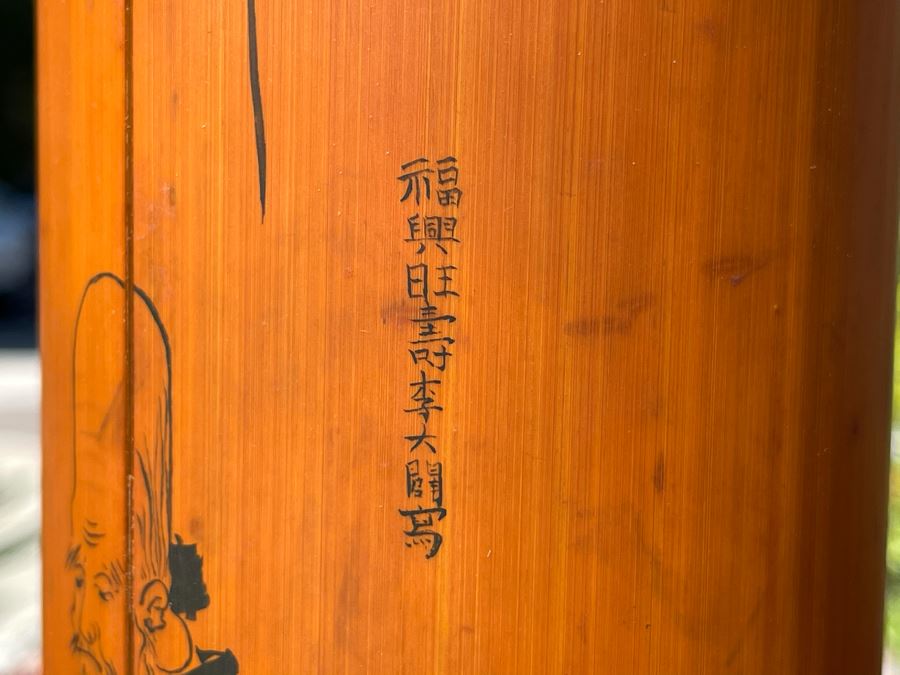 福興旺壽李大闊寫